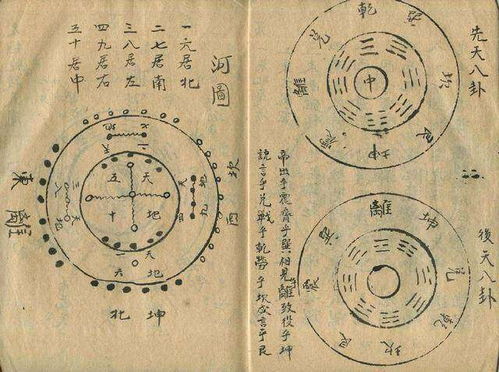 先天八卦
乾
兌
離
震
坤
艮
坎
中
後天八卦
離
坤
兌
乾
坎
艮
巽
帝出乎震齊乎巽相見乎離致役乎坤
說言乎兌戰乎乾勞乎坎成言乎艮
河圖
一六居北
二七居南
三八居左
四九居右
五十居中
天五
地十
天一
地六
東
離
坎
西
北
坤